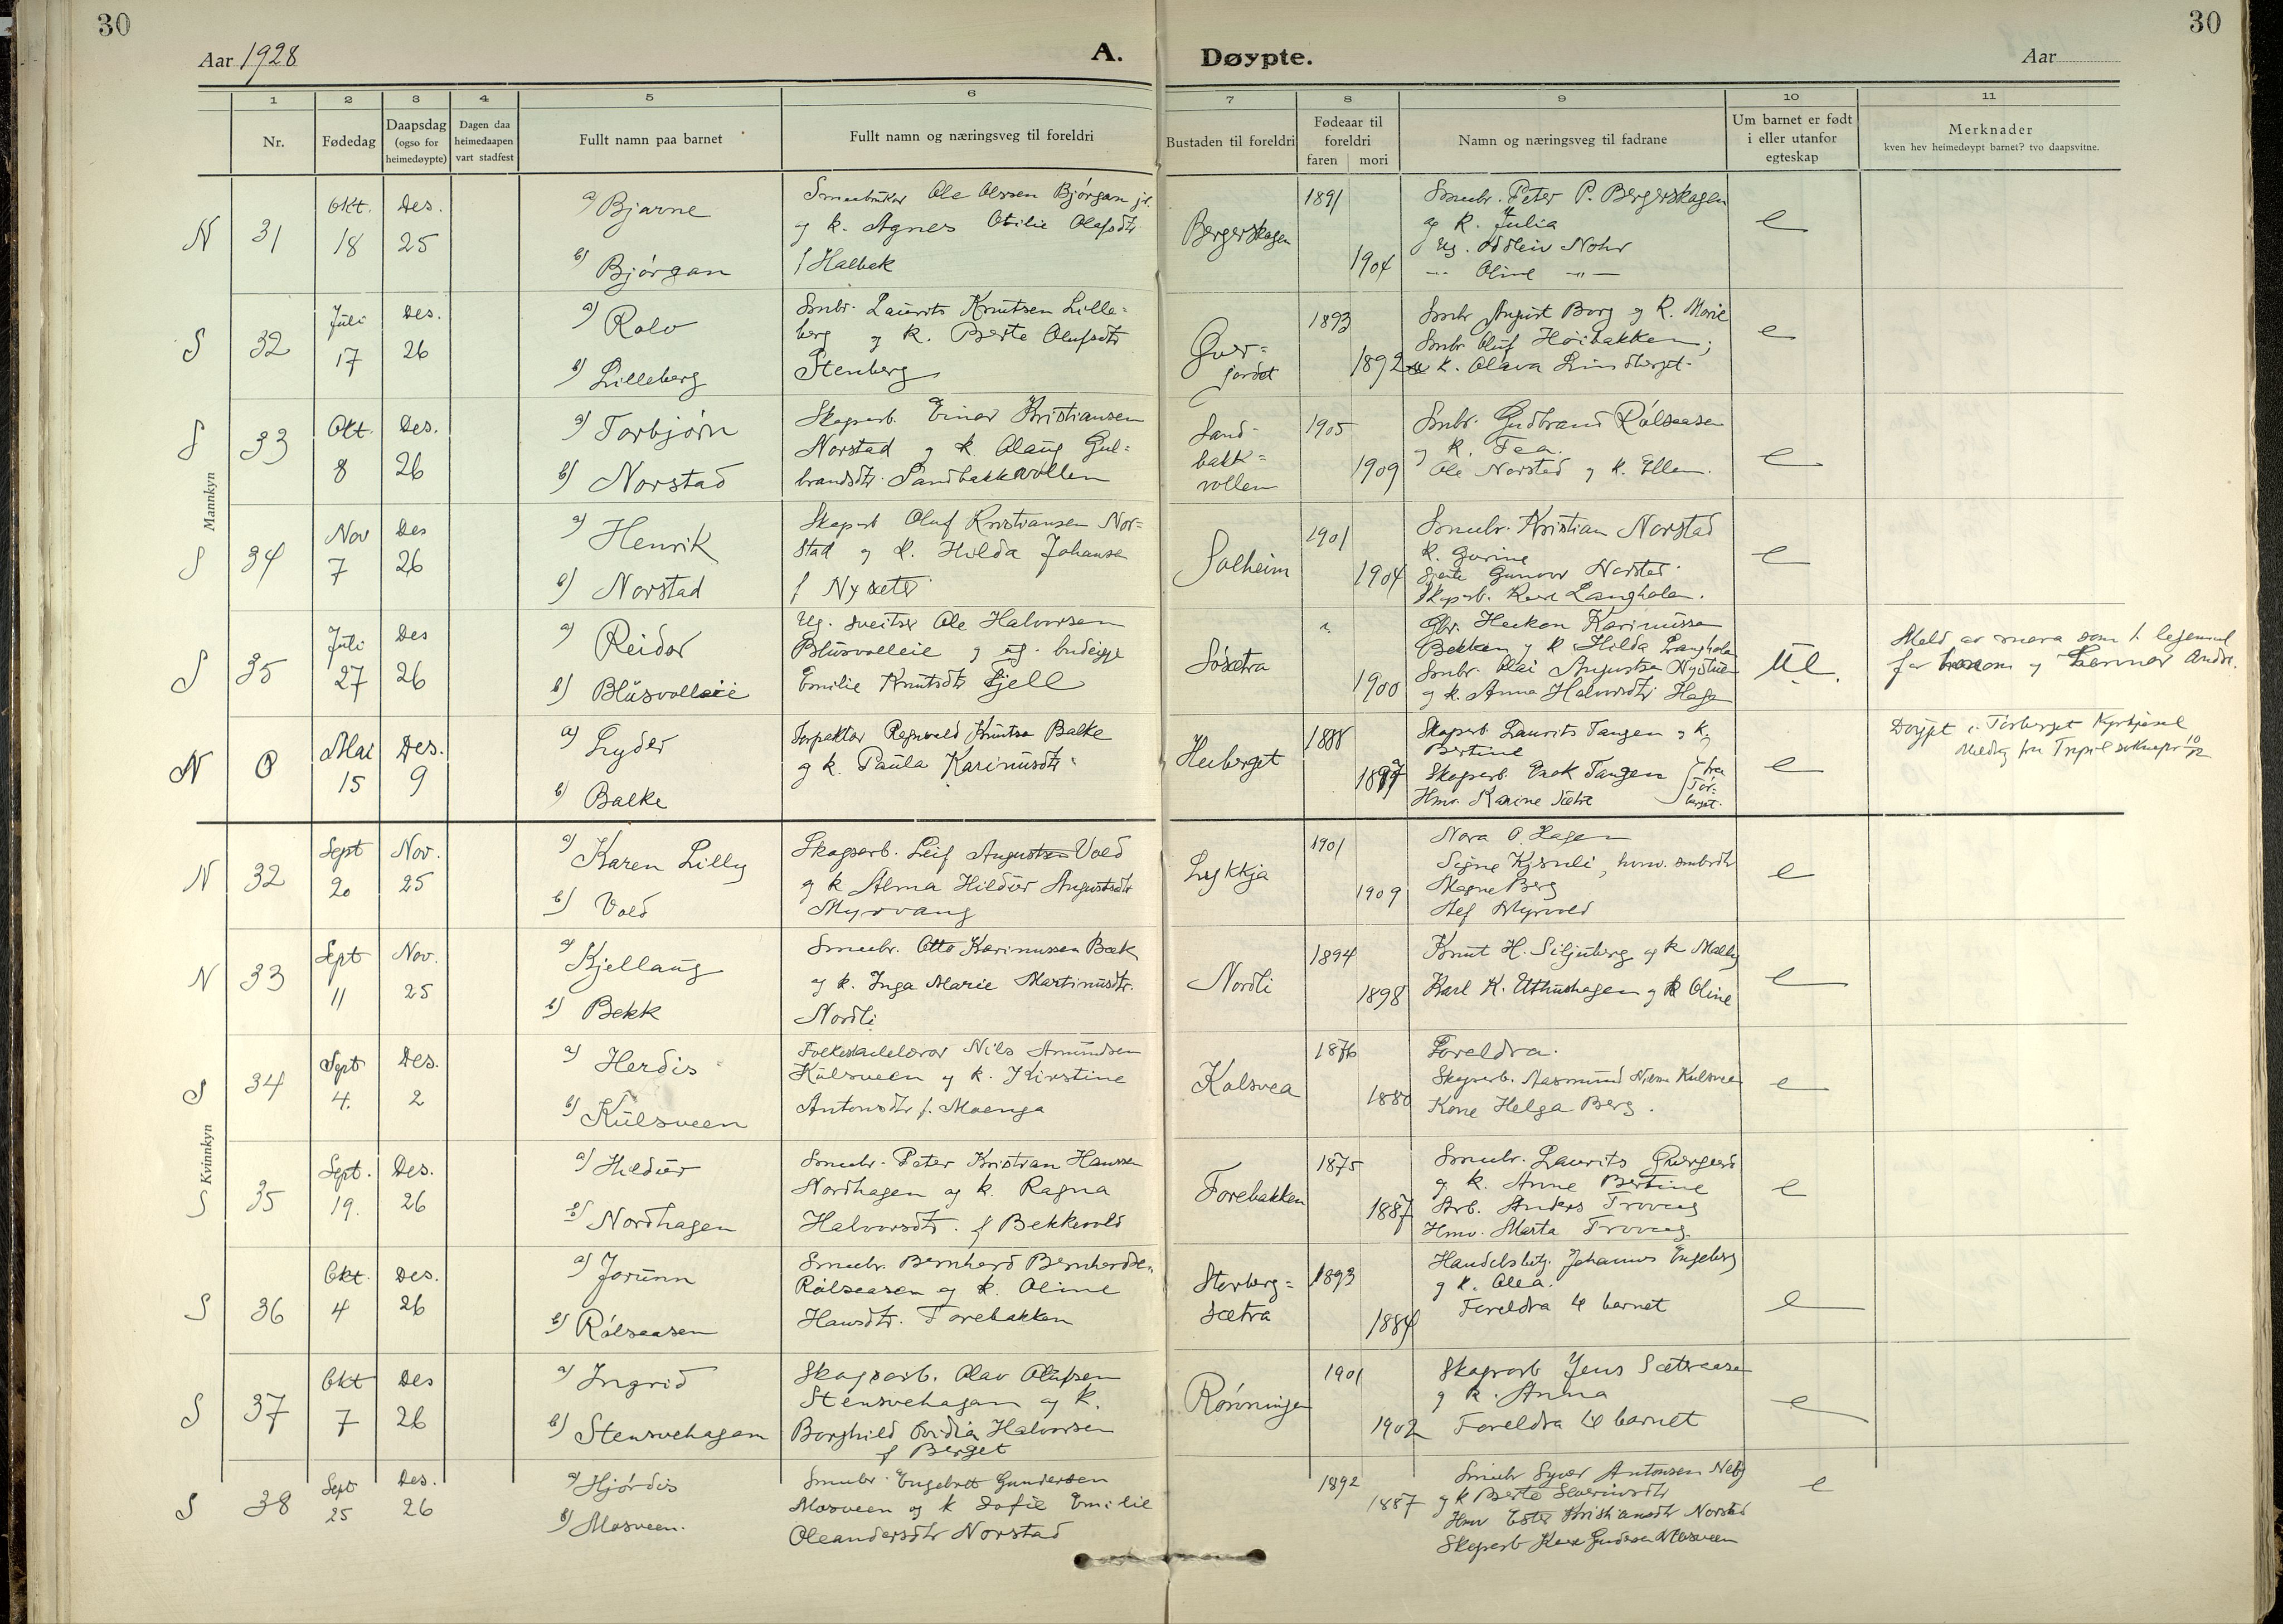 30
30
Aar 1928
A.
Døypte.
Aar
1
2
3
4
5
6
7
8
9
10
11
Nr.
Fødedag
Daapsdag
(ogso for
heimedøypte)
Dagen daa
heimedaapen
vart stadfest
Fullt namn paa barnet
Fullt namn og næringsveg til foreldri
Bustaden til foreldri
Fødeaar til
foreldri
faren
mori
Namn og næringsveg til fadrane
Um barnet er født
i eller utanfor
egteskap
Merknader
kven hev heimedøypt barnet? tvo daapsvitne.
Mannkyn
N
31
Okt.
18
Des.
25
a) Bjarne
b) Bjørgan
Smaabruker Ole Olssen Bjørgan jr.
og k. Agnes Otilie Olafsdtr
f Halbek
Bergerskagen
1891
1904
Smbr. Peter P. Bergerskagen
og k. Julia
Ug. Oddleiv Nohr
-"- Oline -"-
e
S
32
Juli
17
Des.
26
a) Rolv
b) Lilleberg
Smbr. Laurits Knutsen Lille=
berg og k. Berte Olufsdtr
Stenberg
Gver=
jordet
1893
1892
Smbr August Borg og k. Marie
Smbr Oluf Høibakken,
og k. Olava Lindberget.
e
S
33
Okt.
8
Des.
26
a) Torbjørn
b) Norstad
Skogsarb. Einar Kristiansen
Norstad og k. Olaug Gul=
brandsdtr. Sandbakkvollen
Sand-
bakk=
vollen
1905
1909
Smbr. Gudbrand Rølsaasen
og k. Tea.
Ole Norstad og k. Ellen.
e
S
34
Nov
7
Des
26
a) Henrik
b) Norstad
Skogsarb Oluf Kristiansen Nor=
stad og k. Hilda Johanse
f Nysæter
Solheim
1901
1904
Smbr. Kristian Norstad
k. Gurine
Gjente Gunvor Norstad
Skogsarb. Kaare Langholen.
e
S
35
Juli
27
Des
26
a) Reidar
b) Blüsvolleie
Ug. sveitser Ole Halvorsen
Blüsvolleie og ug. budeigje
Emilie Knutsdtr Fjell
Søsætra
1900
Gbr. Haakon Karinussen
Bekken og k Hilda Langholen
Smbr. Olai Augustsen Nystuen
og k. Anna Halvorsdtr Hage
Ue.
Meld av mora som h. legemel
far
N
0
Mai
15
Des.
9
a) Lyder
b) Balke
Inspektør Ragnvald Knutsen Balke
og k. Paula Karinusdtr.
Heuberget
1888
1897
Skogsarb Laurits Tangen og k,
Bertine
Skogsarb. Enok Tangen
Hmv. Karine Sætre
fra
Tør-
berget.
e
Døypt i Tørberget Kyrkjesokn
Melding fra Trysil sokneprest 10/12
Kvinnkyn
N
32
Sept
20
Nov.
25
a) Karen Lilly
b) Vold
Skogsarb. Leif Augustsen Vold
og k Alma Hildur Augustsdtr
Myrvang
Lykkja
1901
1909
Nora O. Hagen
Signe Kjønli, hmv. smbrdtr
Magne Berg
Alf Myrvold
e
N
33
Sept
11
Nov.
25
a) Kjellaug
b) Bekk
Smaabr. Otto Karinussen Bæk
og k. Inga Marie Martinusdtr.
Nordli
Nordli
1894
1898
Knut H. Siljuberg og k Malby
Karl K. Uthushagen og k Oline
e
S
34
Sept
4.
Des.
2
a) Herdis
b) Külsveen
Folkeskulelærar Nils Amundsen
Külsveen og k. Kirstine
Antonsdtr f. Moenga
Kolsvea
1876
1880
Foreldra.
Skogsarb. Aasmund Nilsen Kulsveen
Kone Helga Berg.
e
S
35
Sept.
19.
Des.
26
a) Hildur
b) Nordhagen
Smaabr. Peter Kristian Hanssen
Nordhagen og k. Ragna
Halvorsdtr. f Bekkevold
Forebakken
1875
1887
Smaabr. Laurits Gvergard
og k. Anne Bertine
Arb. Anders Trovaag
Hmv. Marta Trovaag
e
S
36
Okt.
4
Des.
26
a) Jorunn
b) Rølsaasen
Smaabr. Bernhard Bernhardsen
Rølsaasen og k. Oline
Hansdtr. Forebakken
Storberg=
sætra
1893
1884
Handelsbetj. Johannes Engeberg
og k. Olea.
Foreldra til barnet
e
S
37
Okt
7
Des
26
a) Ingrid
b) Stensvehagen
Skogsarb. Olav Olufsen
Stensvehagen og k.
Borghild Ovidia Halvorsen
f Berget
Rønningen
1901
1902
Skogsarb Jens Sætreaasen
og k. Anna
Foreldra til barnet
e
S
38
Sept
25
Des.
26
a) Hjørdis
b) Mosveen.
Smaabr. Engebret Gundersen
Mosveen og k Sofie Emilie
Oleandersdtr Norstad
1892
1887
Smaabr Syver Antonsen Neby
og k Berte Severinsdtr
Hmv Ester Kristiansdtr Norstad
Skogsarb Kaare Gundersen Mosveen
e